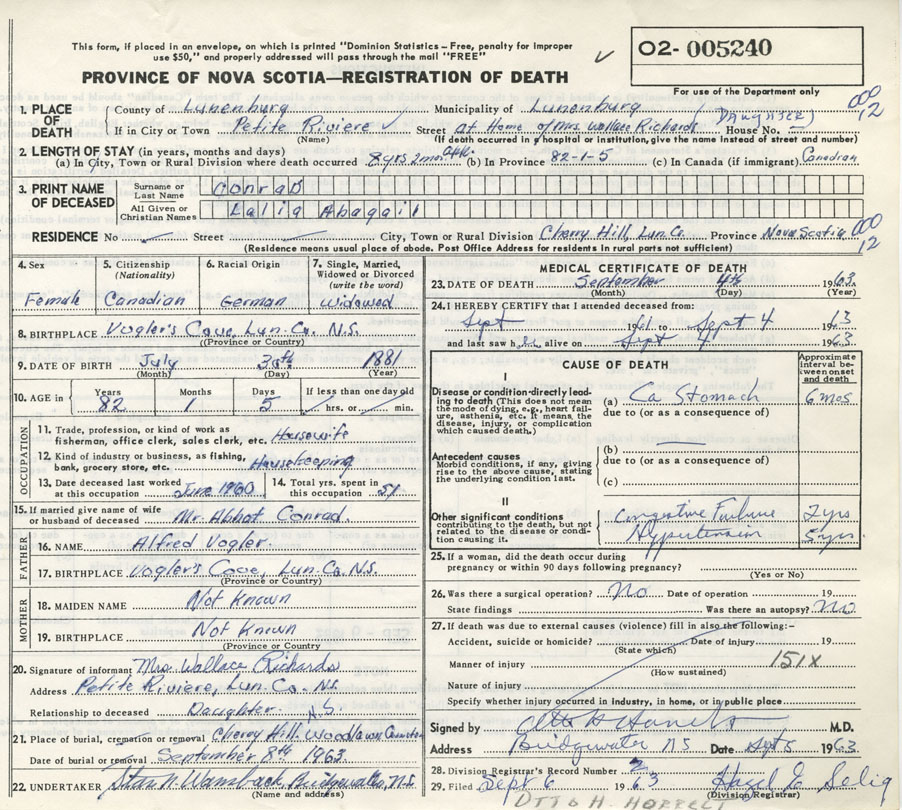 This form, if placed in an envelope, on which is printed "Dominion Statistics – Free, penalty for improper
use $50," and properly addressed will pass through the mail "FREE"
PROVINCE OF NOVA SCOTIA—REGISTRATION OF DEATH
O2- 005240
For use of the Department only
1. PLACE OF DEATH
County of Lunenburg Municipality of Lunenburg
000 12
If in City or Town Petite Riviere Street at Home of Mrs. Wallace Richards DAUGHTER House No. —
(Name) (If death occurred in a hospital or institution, give the name instead of street and number)
2. LENGTH OF STAY (in years, months and days)
(a) In City, Town or Rural Division where death occurred 8 yrs 2 mos (b) In Province 82-1-5 (c) In Canada (if immigrant) Canadian
3. PRINT NAME OF DECEASED
Surname or Last Name Conrad
All Given or Christian Names Lalia Abagail
RESIDENCE No. Street City, Town or Rural Division Cherry Hill, Lun. Co. Province Nova Scotia
000 12
(Residence means usual place of abode. Post Office Address for residents in rural parts not sufficient)
4. Sex
Female
5. Citizenship (Nationality)
Canadian
6. Racial Origin
German
7. Single, Married, Widowed or Divorced (write the word)
Widowed
8. BIRTHPLACE Vogler's Cove, Lun. Co. N.S.
(Province or Country)
9. DATE OF BIRTH July 30th 1881
(Month) (Day) (Year)
10. AGE in Years Months Days If less than one day old
82 1 5 hrs. or min.
OCCUPATION
11. Trade, profession, or kind of work as
fisherman, office clerk, sales clerk, etc. Housewife
12. Kind of industry or business, as fishing,
bank, grocery store, etc. Housekeeping
13. Date deceased last worked at this occupation June 1960
14. Total yrs. spent in this occupation 51
15. If married give name of wife
or husband of deceased Mr. Abbot Conrad.
FATHER
16. NAME Alfred Vogler.
17. BIRTHPLACE Vogler's Cove, Lun. Co. N.S.
(Province or Country)
MOTHER
18. MAIDEN NAME Not Known
19. BIRTHPLACE Not Known
(Province or Country)
20. Signature of informant Mrs. Wallace Richards
Address Petite Riviere, Lun. Co. N.S.
Relationship to deceased Daughter.
N.S.
21. Place of burial, cremation or removal Cherry Hill. Woodlawn Cemetery
Date of burial or removal September 8th 1963.
22. UNDERTAKER Bridgewater, N.S.
(Name and address)
MEDICAL CERTIFICATE OF DEATH
23. DATE OF DEATH September 4th 1963
(Month) (Day) (Year)
24. I HEREBY CERTIFY that I attended deceased from:
Sept 1961 to Sept 4 1963
and last saw her alive on Sept 4 1963
CAUSE OF DEATH
Approximate interval between onset and death
I
Disease or condition directly leading
to death (This does not mean
the mode of dying, e.g., heart failure,
asthenia, etc. It means, the
disease, injury, or complication
which caused death.)
(a) Ca Stomach 6 mos
due to (or as a consequence of)
Antecedent causes
Morbid conditions, if any, giving
rise to the above cause, stating
the underlying condition last.
(b)
due to (or as a consequence of)
(c)
II
Other significant conditions
contributing to the death, but not
related to the disease or condition
causing it.
Congestive Failure 2 yrs
Hypertension 5 yrs.
25. If a woman, did the death occur during
pregnancy or within 90 days following pregnancy?
(Yes or No)
26. Was there a surgical operation? No Date of operation 19
State findings Was there an autopsy? No
27. If death was due to external causes (violence) fill in also the following:–
Accident, suicide or homicide? Date of injury 19
(State which)
Manner of injury 151X
(How sustained)
Nature of injury
Specify whether injury occurred in Industry, in home, or in public place
Signed by M.D.
Address Bridgewater NS Date Sept 5 1963
28. Division Registrar's Record Number 2
29. Filed Sept 6 1963 Hazel E Selig
(Division Registrar)
OTTO H.